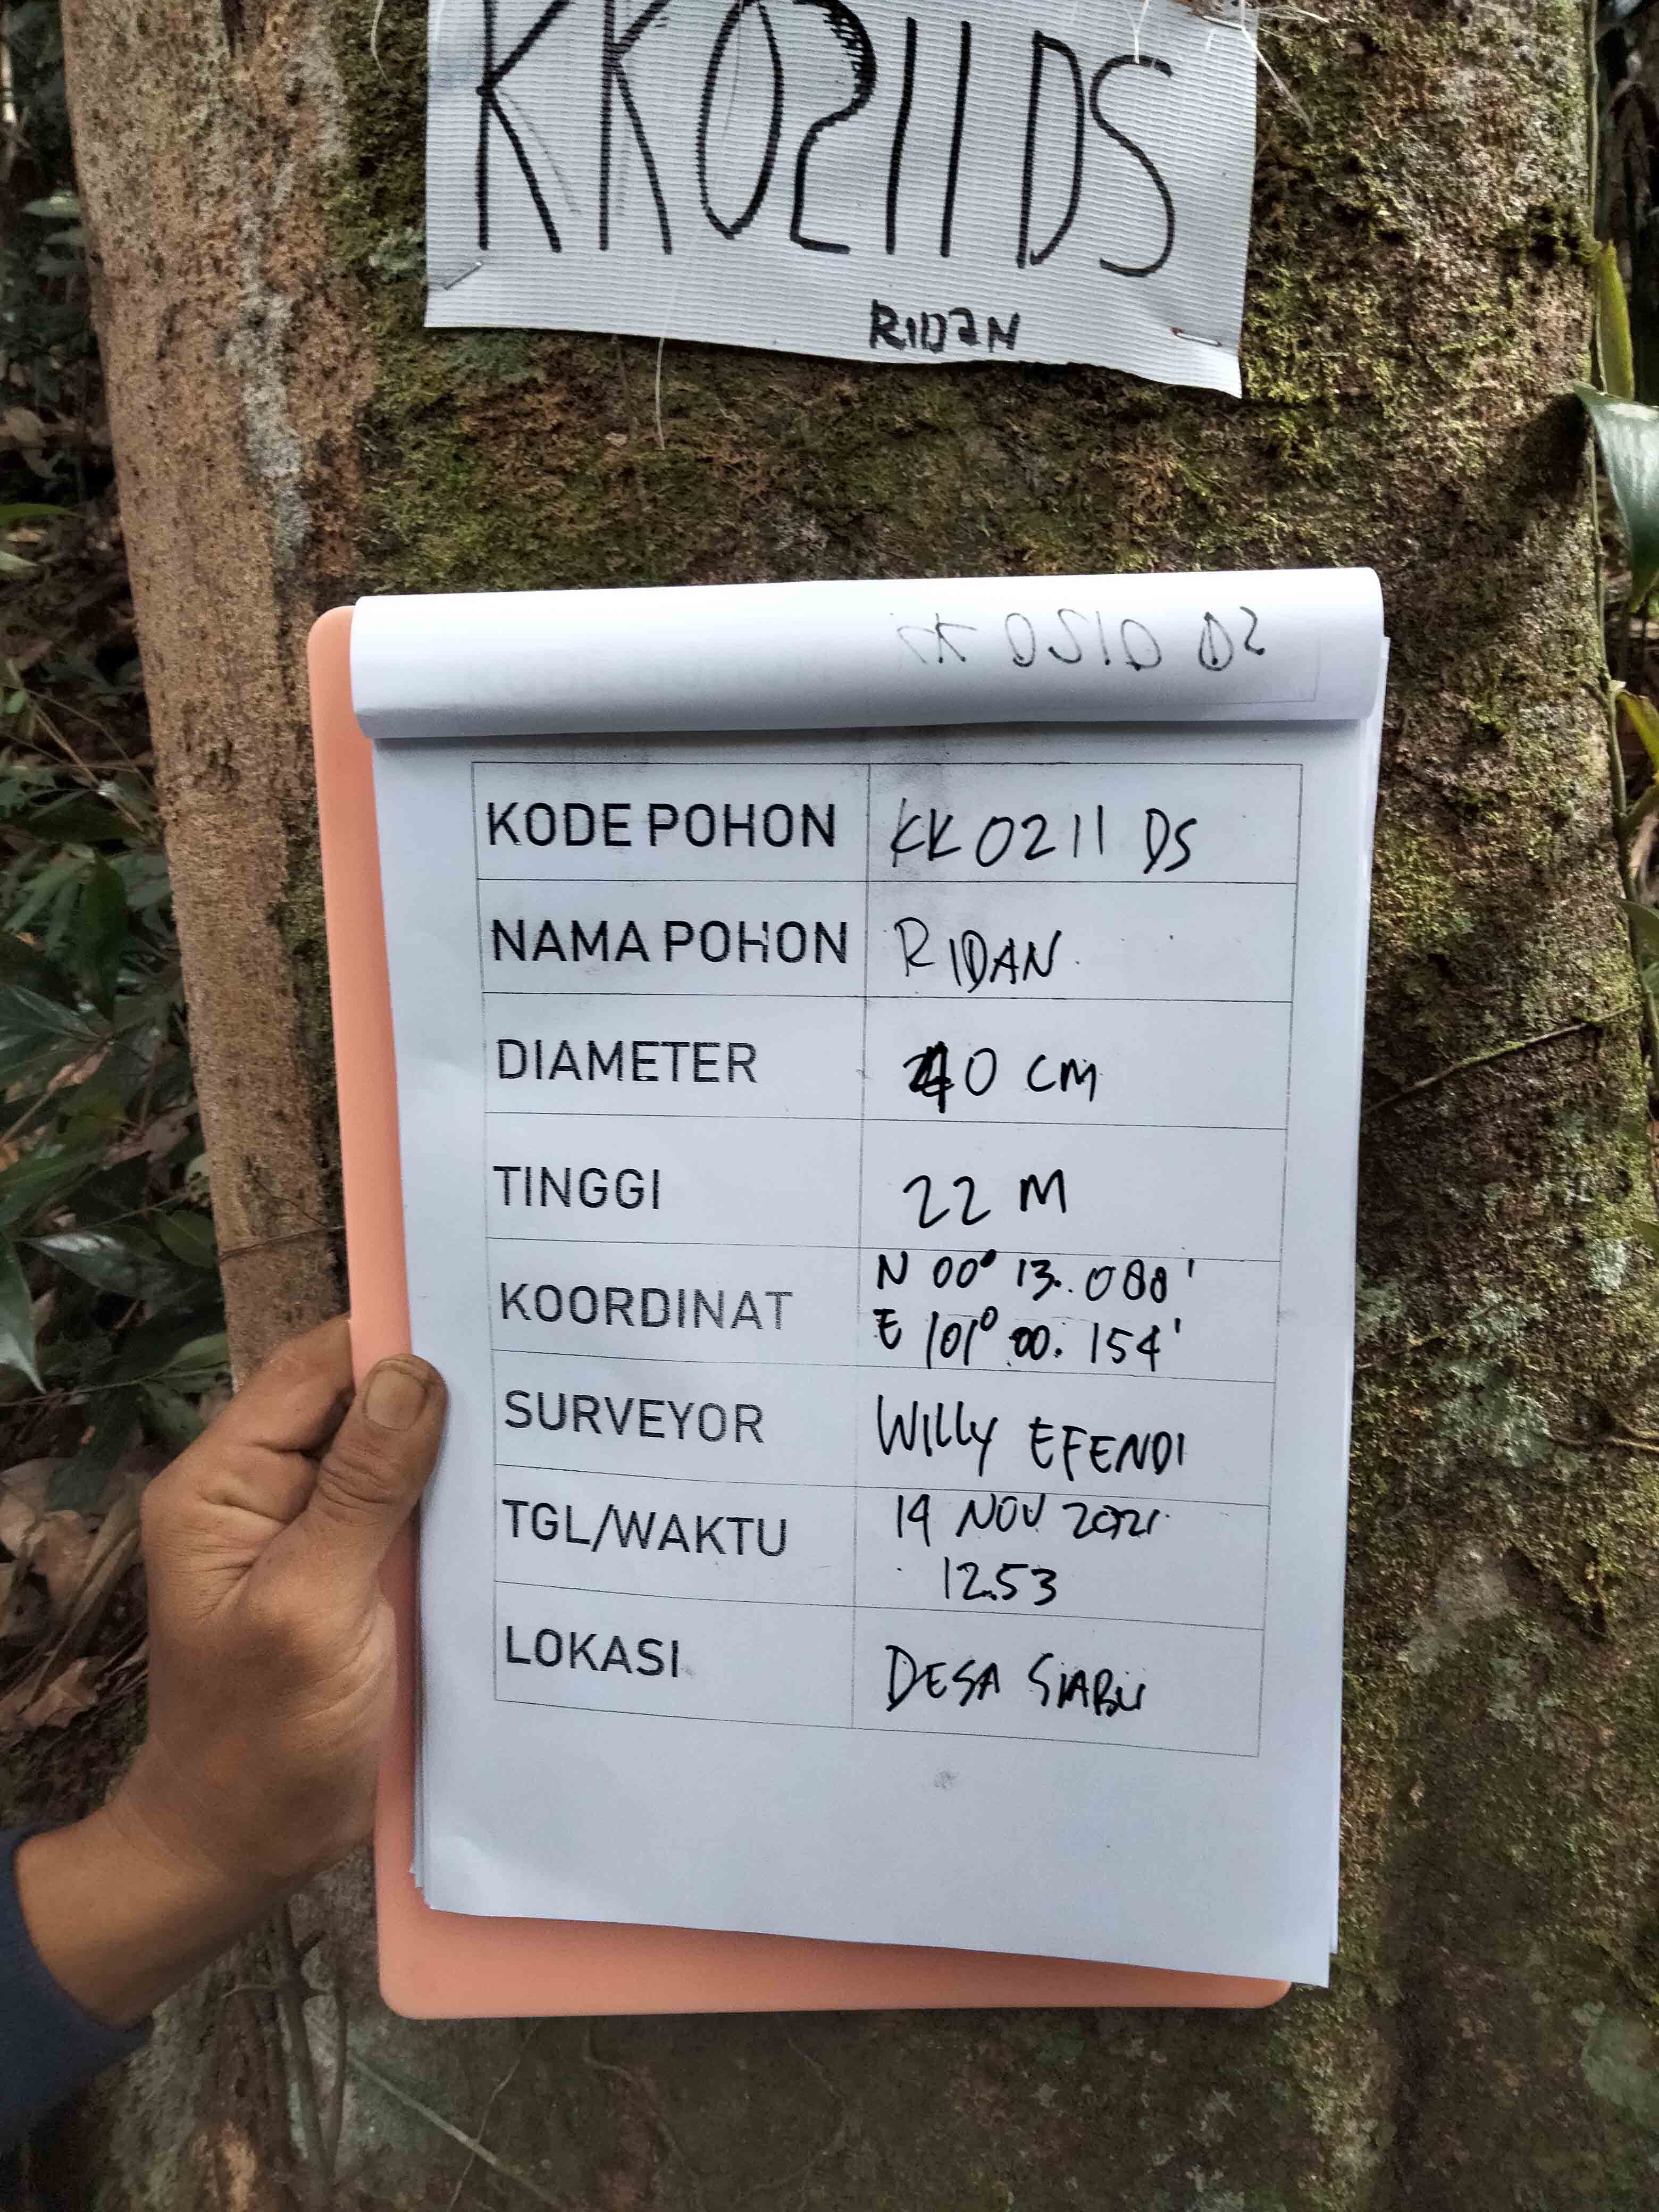 KK0211DS
RIDAN
KODE POHON KK0211 DS
NAMA POHON RIDAN
DIAMETER 40 CM
TINGGI 22 M
KOORDINAT N 00° 13. 088'
E 101° 00. 154'
SURVEYOR WILLY EFENDI
TGL/WAKTU 14 NOV 2021
12.53
LOKASI DESA SIABU